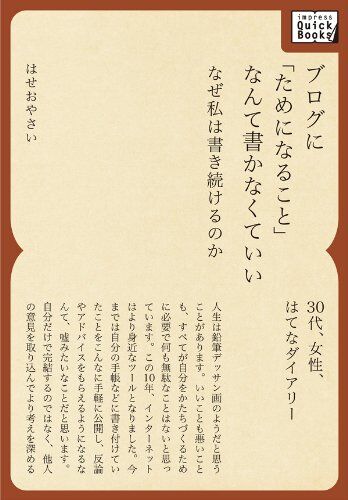 impress
Quick
Books
ブログに
「ためになること」
なんて書かなくていい
なぜ私は書き続けるのか
はせおやさい
30代、女性、
はてなダイアリー
人生は鉛筆デッサン画のようだと思う
ことがあります。いいことも悪いこと
も、すべてが自分をかたちづくるため
に必要で何も無駄なことはないと思っ
ています。この10年、インターネット
はより身近なツールとなりました。今
までは自分の手帳などに書き付けてい
たことをこんなに手軽に公開し、反論
やアドバイスをもらえるようになるな
んて、嘘みたいなことだと思います。
自分だけで完結するのではなく、他人
の意見を取り込んでより考えを深める